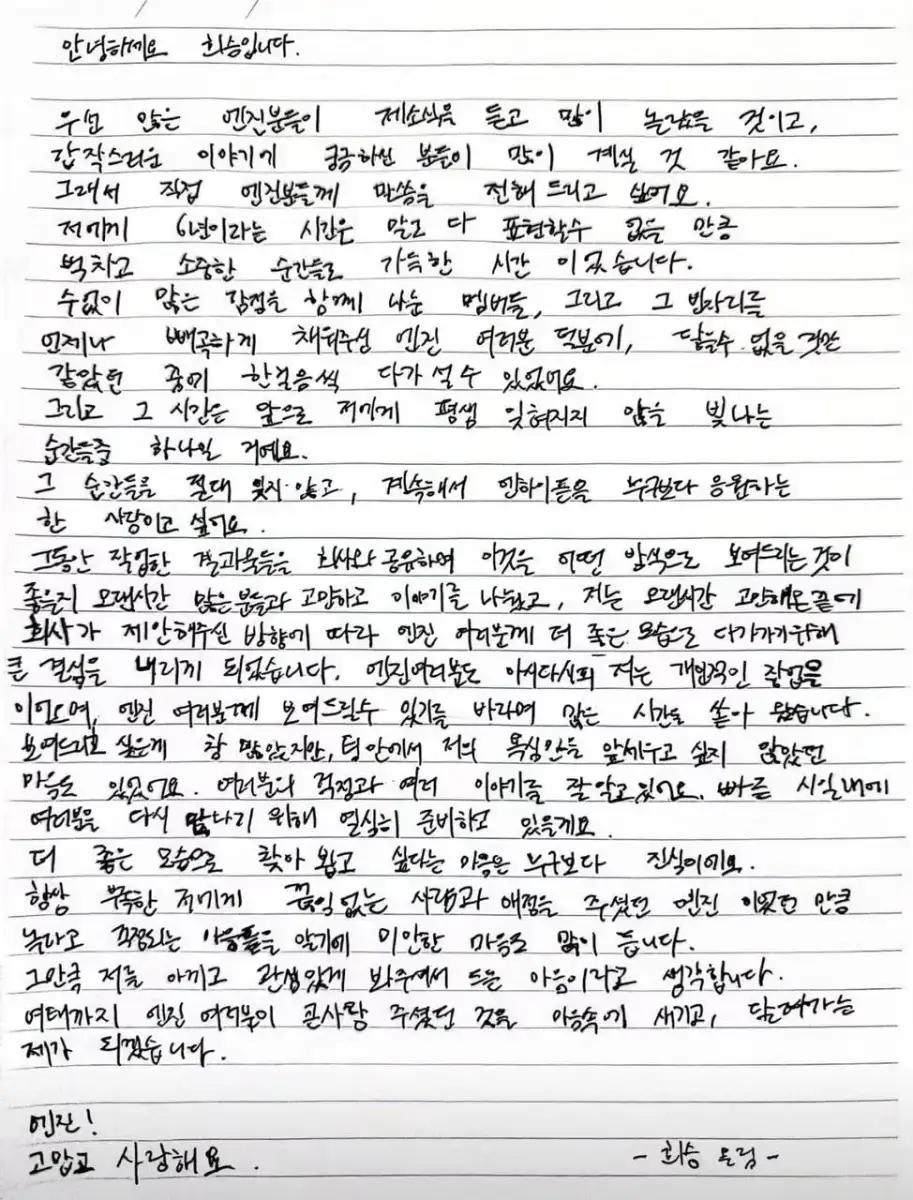 안녕하세요 희승입니다.
우선 많은 엔진분들이 제소식을 듣고 많이 놀랐을 것이고,
갑작스러운 이야기에 궁금하신 분들이 많이 계실 것 같아요.
그래서 직접 엔진분들께 말씀을 전해 드리고 싶어요.
저에게 6년이라는 시간은 말로 다 표현할수 없을 만큼
벅차고 소중한 순간들로 가득한 시간 이었습니다.
수없이 많은 감정을 함께 나눈 멤버들, 그리고 그 빈자리를
언제나 빼곡하게 채워주신 엔진 여러분 덕분에, 닿을수 없을 것만
같았던 꿈에 한걸음씩 다가 설 수 있었어요.
그리고 그 시간은 앞으로 저에게 평생 잊혀지지 않을 빛나는
순간들중 하나일 거예요.
그 순간들을 절대 잊지 않고, 계속해서 엔하이픈을 누구보다 응원하는
한 사람이고 싶어요.
그동안 작업한 결과물들을 회사와 공유하며 이것을 어떤 방식으로 보여드리는 것이
좋을지 오랜시간 많은 분들과 고민하고 이야기를 나눴고, 저는 오랜시간 고민해온 끝에
회사가 제안해주신 방향에 따라 엔진 여러분께 더 좋은 모습으로 다가가기위해
큰 결심을 내리게 되었습니다. 엔진여러분도 아시다시피 저는 개인적인 작업을
이어오며, 엔진 여러분께 보여드릴수 있기를 바라며 많은 시간을 쏟아 왔습니다.
보여드리고 싶은게 참 많았지만, 팀 안에서 저의 욕심만을 앞세우고 싶지 않았던
마음도 있었어요. 여러분의 걱정과 여러 이야기를 잘 알고 있어요. 빠른 시일내에
여러분을 다시 만나기 위해 열심히 준비하고 있을게요.
더 좋은 모습으로 찾아 뵙고 싶다는 마음은 누구보다 진심이에요.
항상 부족한 저에게 끊임 없는 사랑과 애정을 주셨던 엔진 이었던 만큼
놀라고 걱정되는 마음들을 알기에 미안한 마음도 많이 듭니다.
그만큼 저를 아끼고 관심있게 봐주셔서 드는 마음이라고 생각합니다.
여태까지 엔진 여러분이 큰사랑 주셨던 것을 마음속에 새기고, 달려가는
제가 되겠습니다.
엔진!
고맙고 사랑해요.
- 희승 드림 -